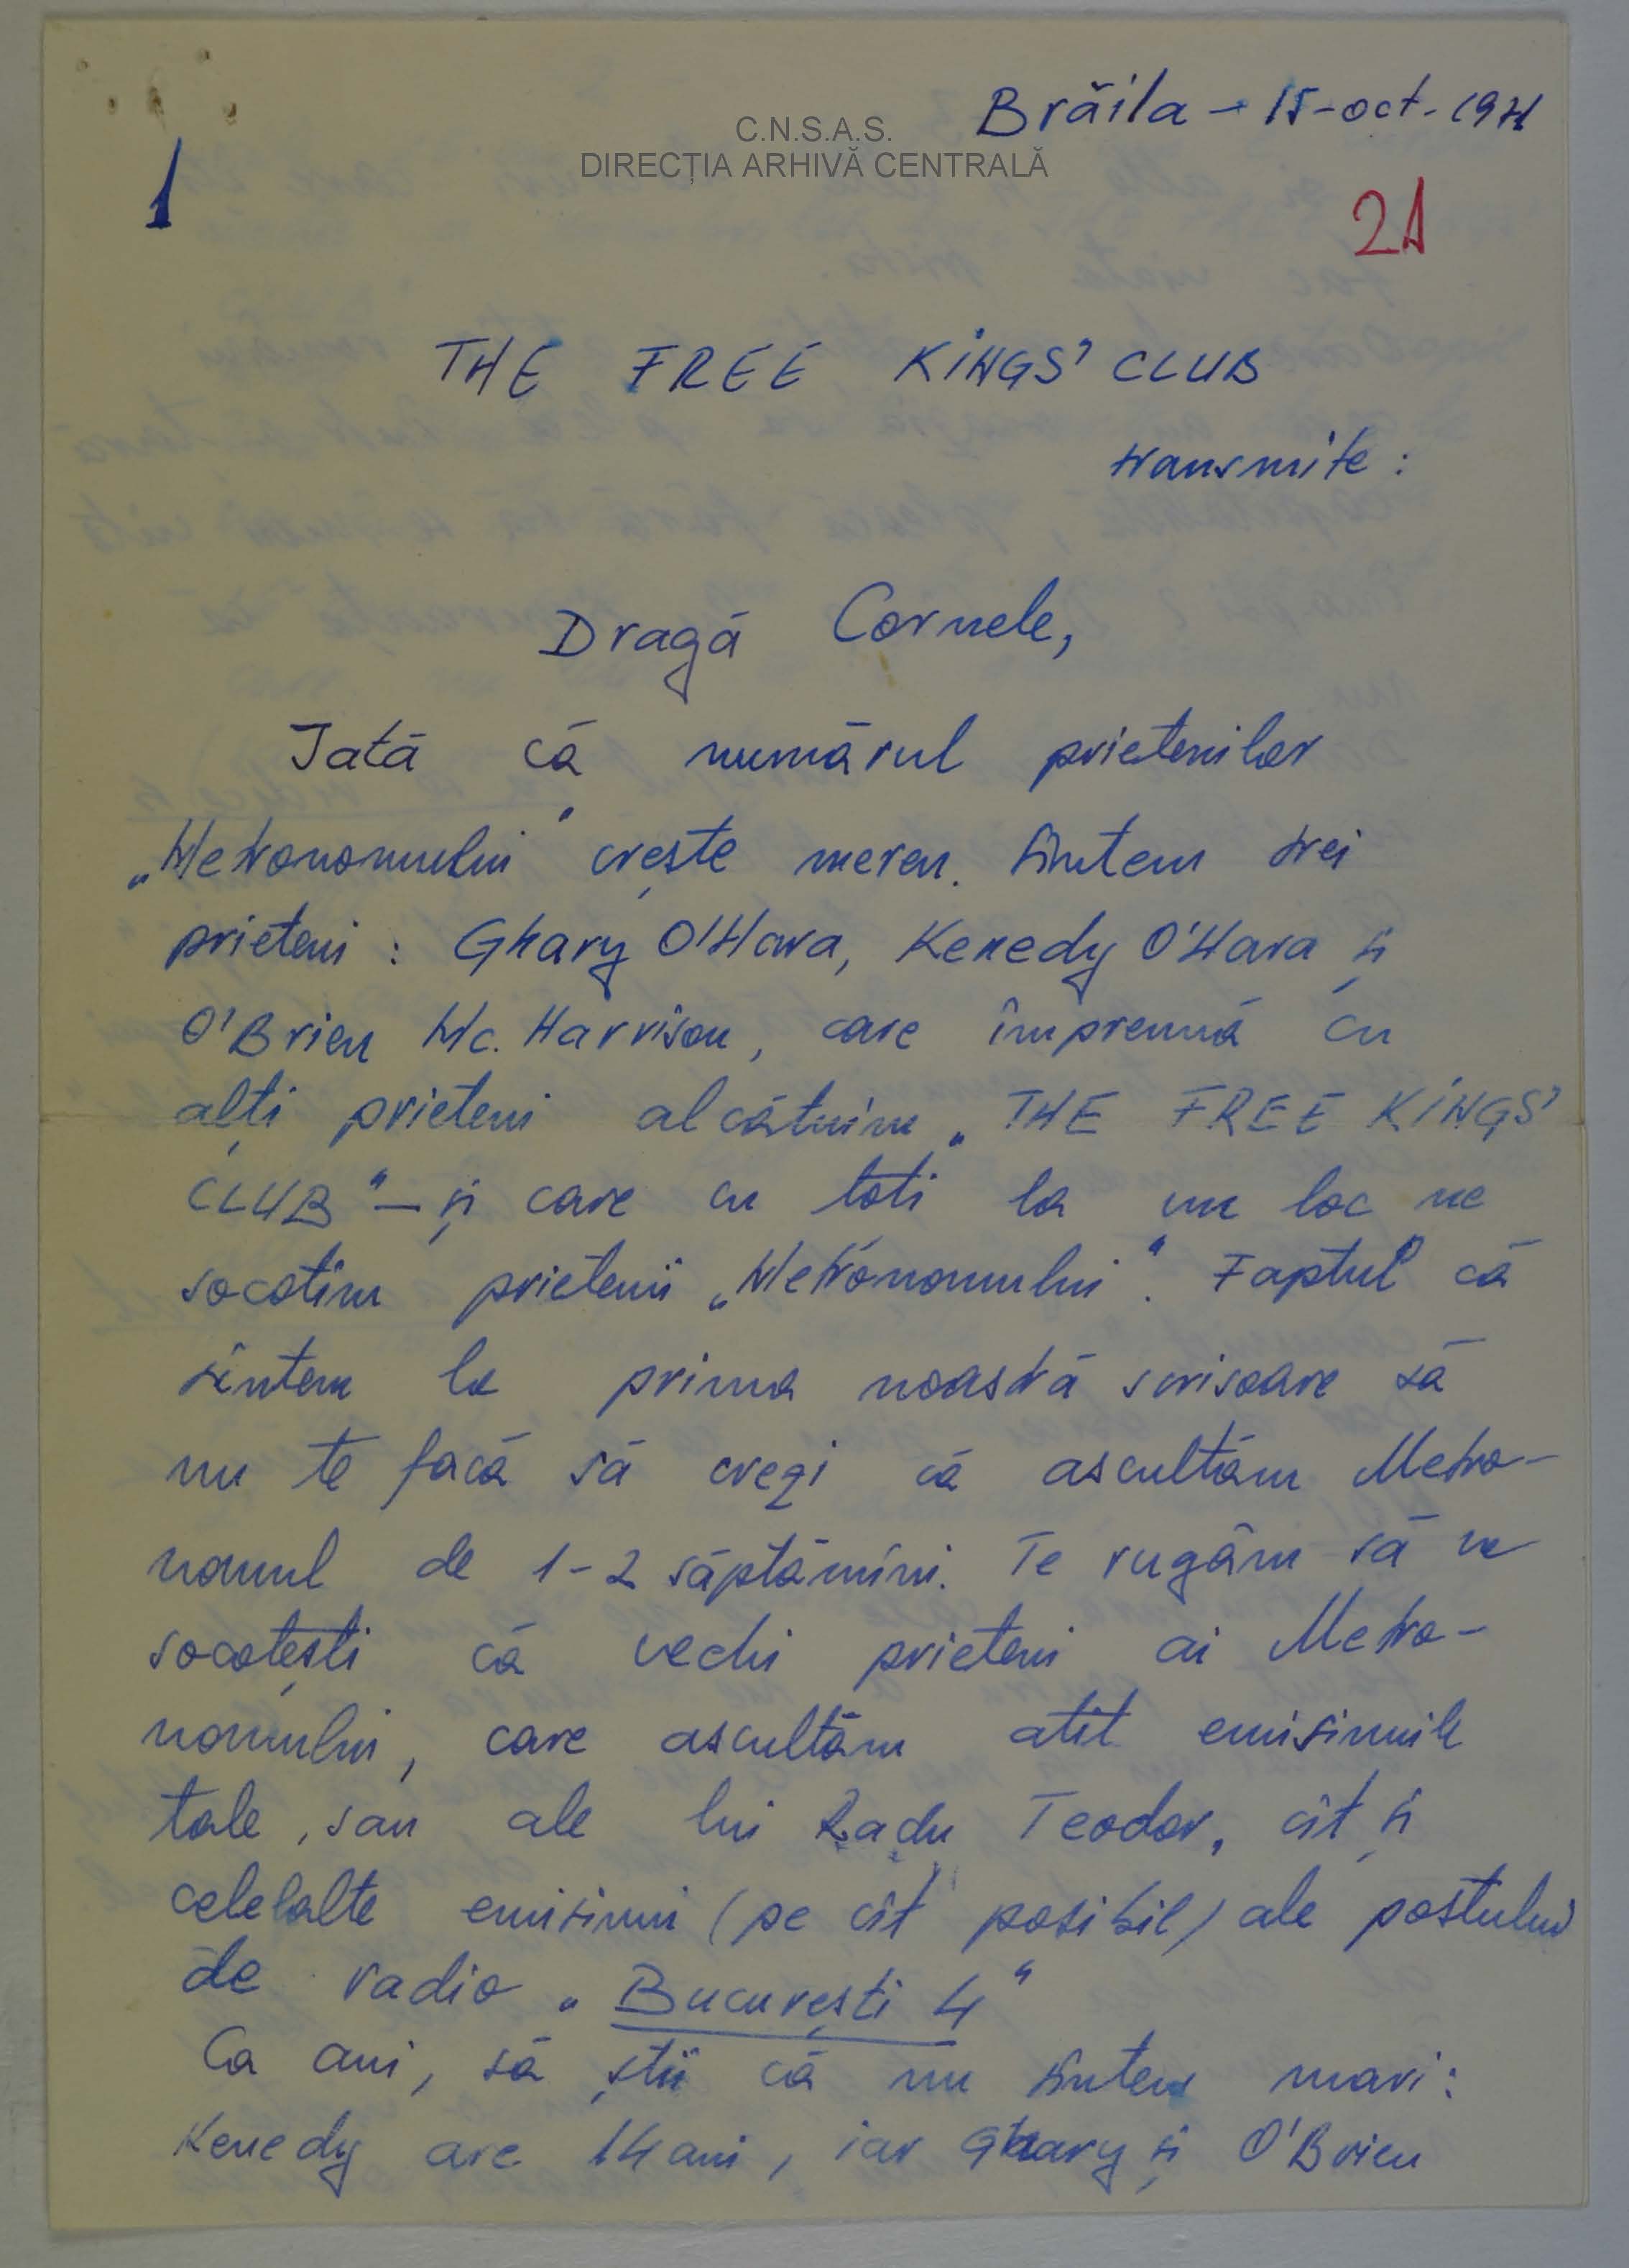 Brăila - 15-oct-1971
C.N.S.A.S.
DIRECȚIA ARHIVĂ CENTRALĂ
1
21
THE FREE KINGS' CLUB
transmite:
Dragă Cornele,
Iată că numărul prietenilor
„Metronomului" crește mereu. Sîntem trei
prieteni: Ghary O'Hara, Kenedy O'Hara și
O'Brien Mc. Harrison, care împreună cu
alți prieteni alcătuim „THE FREE KINGS'
CLUB" – și care cu toti la un loc ne
socotim prietenii „Metronomului". Faptul că
sîntem la prima noastră scrisoare să
nu te facă să crezi că ascultăm Metro-
nomul de 1-2 săptămîni. Te rugăm să ne
socotești ca vechi prieteni ai Metro-
nomului, care ascultăm atît emisiunile
tale, sau ale lui Radu Teodor, cît și
celelalte emisiuni (pe cît posibil) ale postului
de radio „București 4"
Ca ani, să știi că nu sîntem mari:
Kenedy are 14 ani, iar Ghary și O'Brien